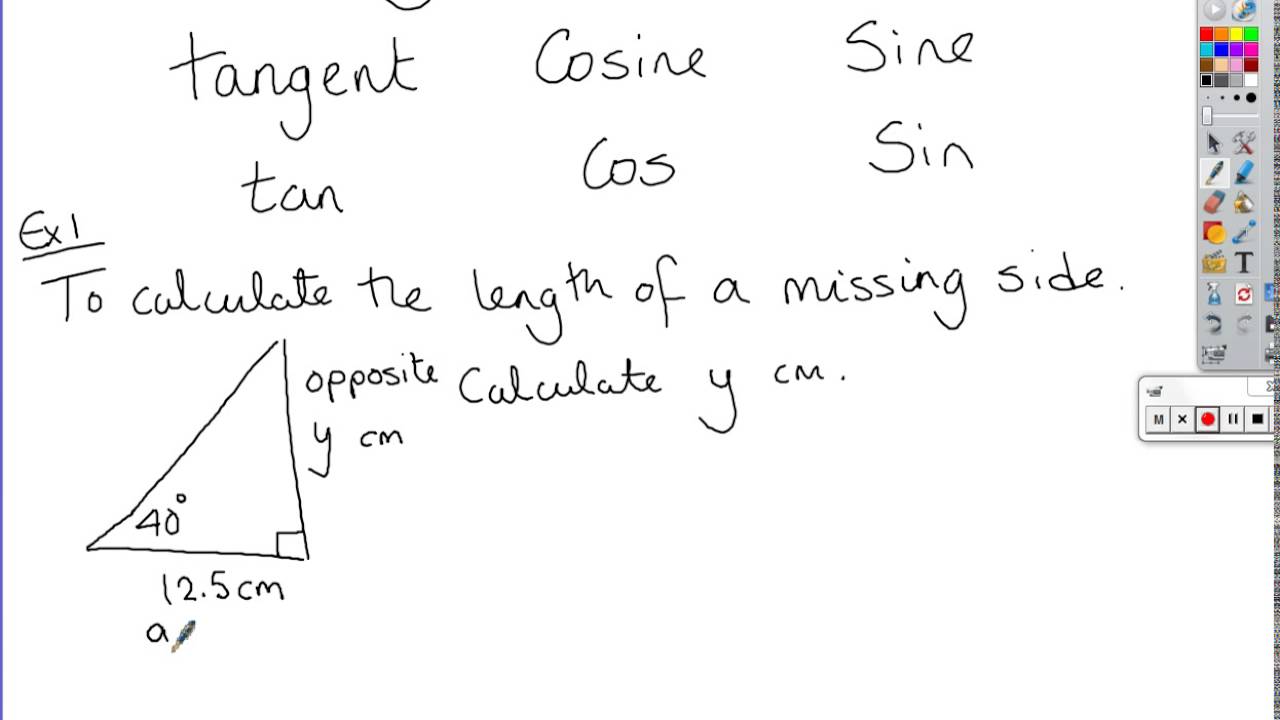 tangent Cosine Sine
tan Cos Sin
Ex1
To calculate the length of a missing side.
opposite Calculate y cm.
y cm
40°
12.5cm
a
M
T